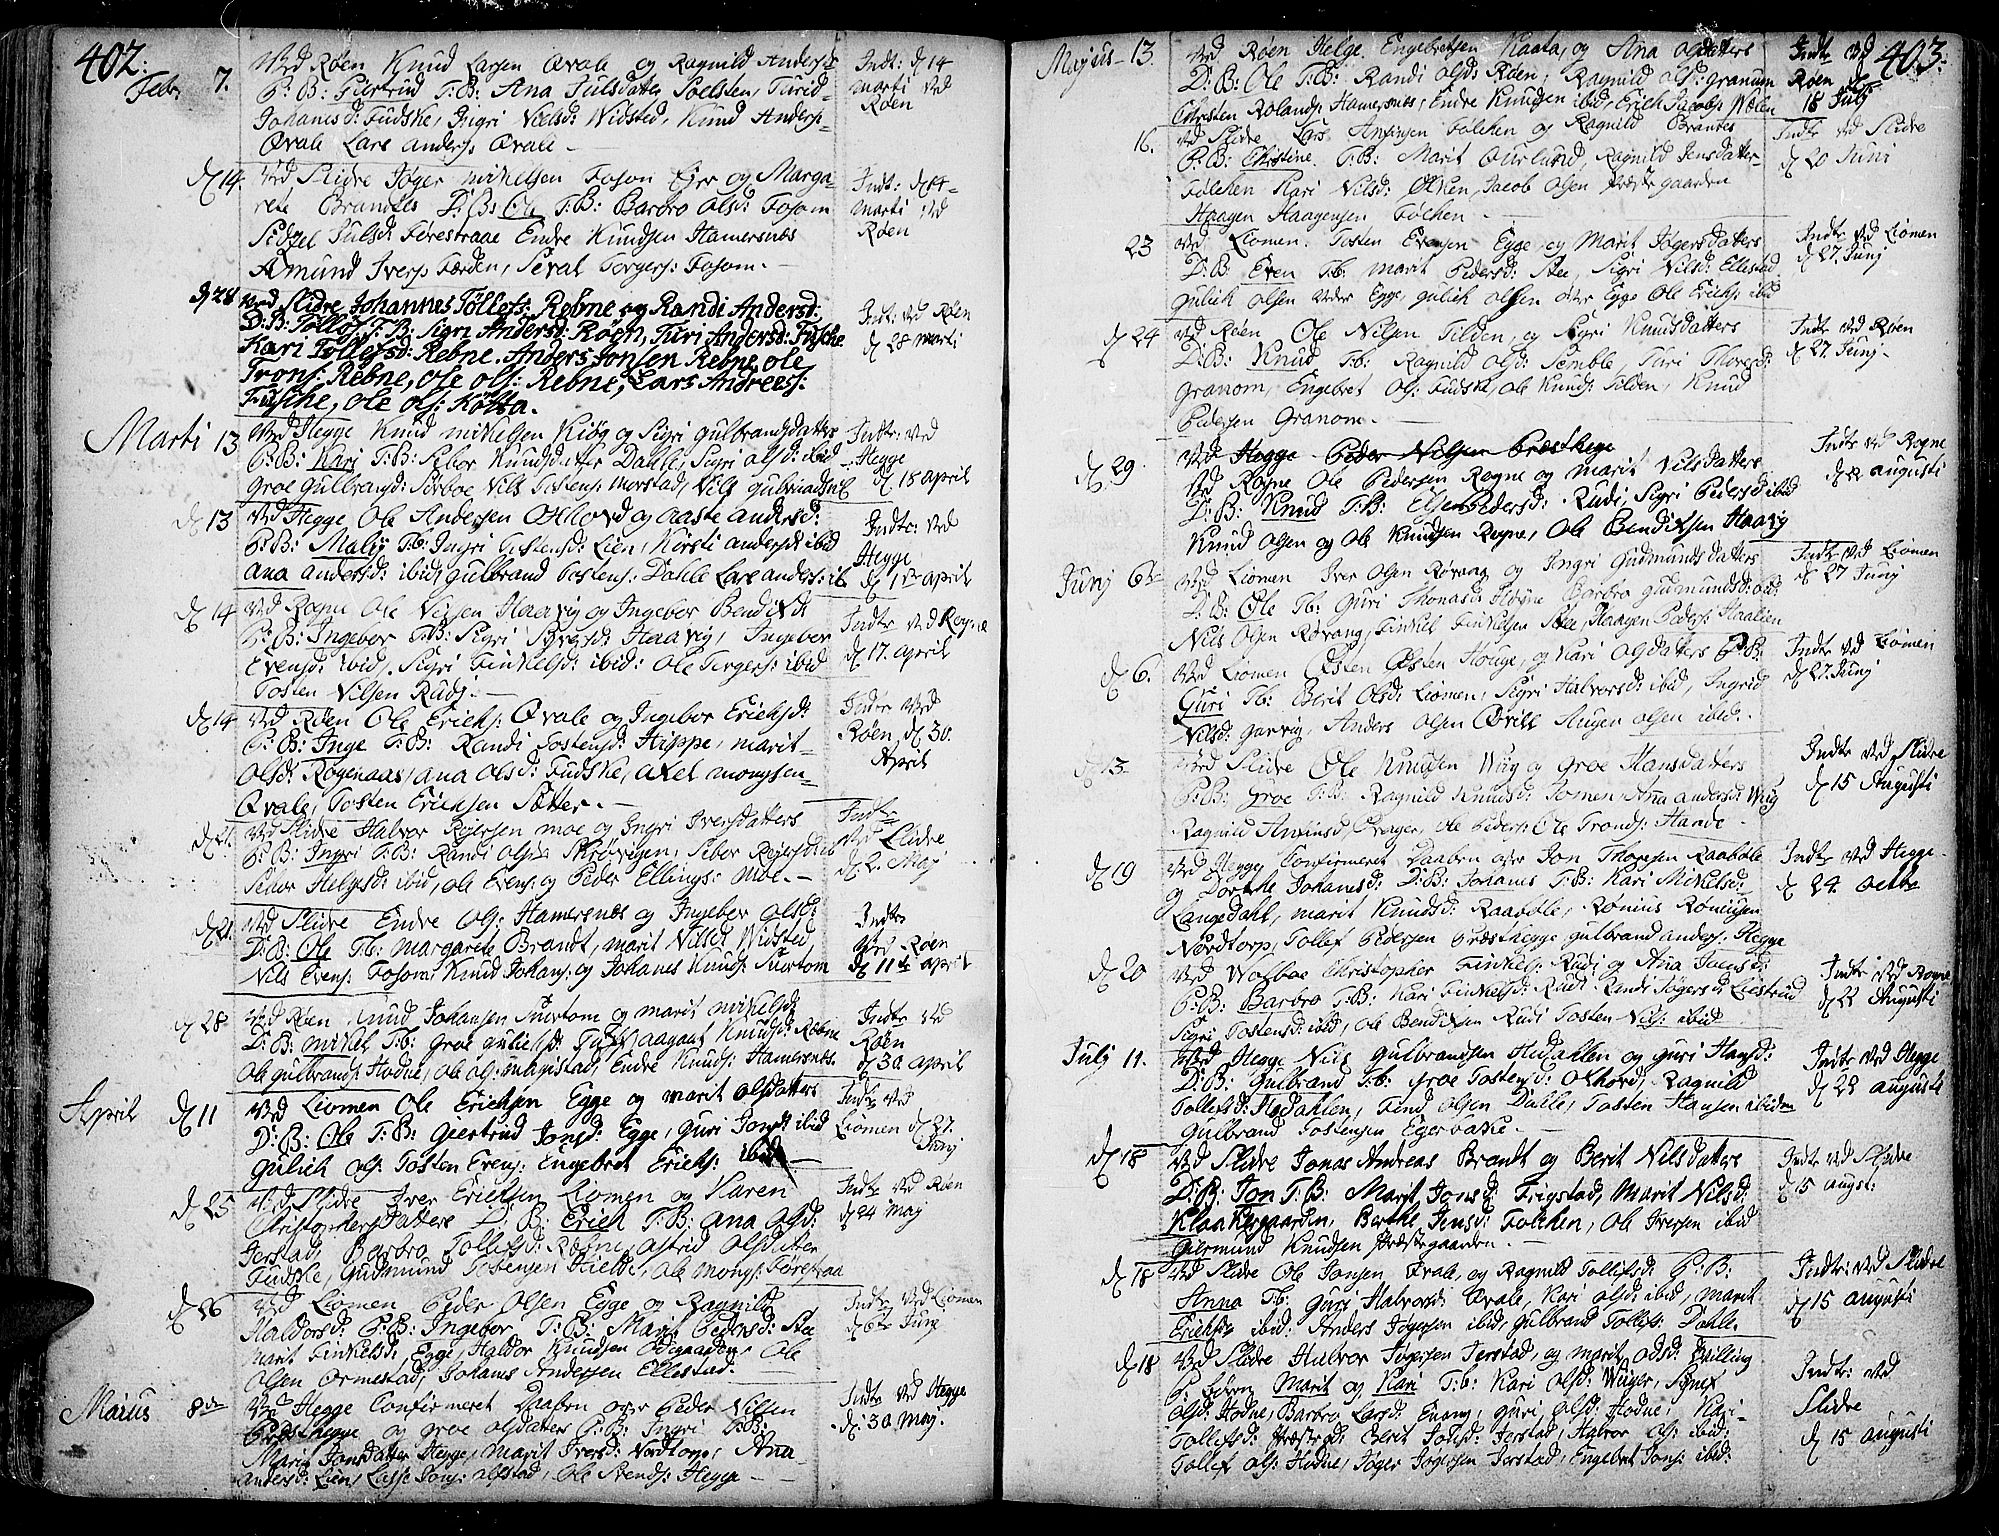 402.
Febr 7. Ved Røen Knud Larsen Qvale og Ragnild Anders:
P: B: Giertrud T: B: Ana Julsdatter Soelsten, Turid
Johanesd: Fudske, Ingri Nielsd: Widsted, Knud Anders:
Qvale Lars Anders: Qvale.
Indt: d 14 Marti ved Røen
d 14. Ved Slidre Jøger Mikelsen Fosom Ejer og Marga-
rete Brandtes D: B: Ole T: B: Barbro Olsd: Fosom
Sidzel Julsd: Førestraae Endre Knudsen Hamersnæs
Amund Ivers: Færden, Sevat Torgers: Fosom.
Indt: d 14 Marti ved Røen
d 28 Ved Slidre Johannes Tollefs: Rebne og Randi Andersd:
D: B: Tollof, T: B: Sigri Andersd: Røen, Turi Andersd: Fusche
Kari Tollefsd: Rebne. Anders Jonsen Rebne, Ole
Trons: Rebne, Ole Ols: Rebne, Lars Andrees:
Fusche, Ole Ols: Kølta.
Indt: ved Røen d 28 Marti
Marti 13 Ved Hegge Knud Mikelsen Kiøg og Sigri Gulbrandsdatters
P: B: Kari T: B: Sebor Knudsdatter Dahle, Sigri Olsd: ibid
Groe Gulbrandsd: Sørboe, Nils Tostens: Morstad, Nils
Indt: ved Hegge d 18 April
d 13 Ved Hegge Ole Andersen Olhord og Aaste Andersd:
P: B: Malij T: b: Ingri Tostensd: Lien, Kiersti Andersd: ibid
Ana Andersd: ibid, Gulbrand Tostens: Dahle Lars Anders: ib
Indt: ved Hegge d 18 April
d 14 Ved Rogne Ole Nilsen Haavig og Ingebor Bendixsd:
P: B: Ingebor T: B: Sigri Iversd: Haavig, Ingebor
Evensd: ibid. Sigri Finkelsd: ibid: Ole Torgers: ibid
Tosten Nilsen Rudj.
Indt: ved Rogne d 17. April
d 14 Ved Røen Ole Ericks: Qvale og Ingebor Ericksd:
P: B: Inge T: B: Randi Tostensd: Hippe, Marit
Olsd: Rogenaas, Ana Olsd: Fudske, Axel Mongsen
Qvale, Tosten Ericksen Sætter.
Indt: ved Røen, d 30. April
d 21. Ved Slidre Halvor Rejersen Moe og Ingri Iversdatters
P: B: Ingri T: B: Randi Olsd: Skrøvigen, Sebor Rejersd: ib
Sebor Helgesd: ibid, Ole Evens: og Peder Ellings: Moe.
Indt: ved Slidre d: 2. Maj
d 21. Ved Slidre Endre Ols: Hamersnæs og Ingebor Olsd:
D: B: Ole T: b: Margarete Brandt, Marit Nilsd: Widsted,
Nils Evens: Fosom Knud Johans: og Johanes Knuds: Suertom
Indt: ved Røen d 11te April
d 28 Ved Røen Knud Johansen Suertom og Marit Mikelsd:
D: B: Mikel T: b: Groe Gulicksd: Aagaat Knudsd: Robne
Ole Gulbrands: Hodne, Ole Ols: Magistad, Endre Knuds: Hamersnæs
Indt: ved Røen d 30 April
April d 11 Ved Liomen Ole Ericksen Egge og Marit Olsdatters
D: B: Ole T: B: Geertrud Jonsd: Egge, Guri Jonsd: ibid
Gulich Ols: Tosten Evens: Engebret Ericks: ibid
Indt: ved Liomen d 27. Junj
d 25 Ved Slidre Iver Ericksen Liomen og Karen
Christophersdatters D: B: Erich T: B: Ana Olsd:
Jerstad, Barbro Tollefsd: Røbne, Astrid Olsdatter
Fudske, Gudmund Tostensen Hielde, Ole Mongs: Førestraa
Indt: ved Røen d 24 Maj
d 26 Ved Liomen Peder Olsen Egge og Ragnild
Haldorsd: P: B: Ingebor T: B: Marit Pedersd: Stee
Marit Finkelsd: Egge, Haldor Knudsen Ødegaarden, Ole
Olsen Ormestad, Johanes Andersen Ellestad.
Indt: ved Liomen d 6te Junj
Maius 8de Ved Hegge Confirmeret Daaben over Peder Nilsen
Præsthegge og Groe Olsdatters P: B: Ingri T: B:
Marit Jonsdatter Hegge, Marit Iversd: Nordtorp, Ana
Andersd: Lien, Lasse Jons: Ølstad, Ole Svends: Hegge
Indt: ved Hegge d: 30 Maj.
403.
Majus 13. Ved Røen Helge Engebretsen Kaata, og Ana Olsdatters
D: B: Ole T: B: Randi Olsd: Røen, Ragnild Olsd: Granum
Christen Rolands: Hamersnæs, Endre Knudsen ibid, Erich Jacobs: Wælen
Indt: ved Røen d 18 Julj
16. Ved Slidre Lars Anfinsen Følchen og Ragnild Brandtes
P: B: Christine. T: B: Marit Ourlund, Ragnild Jensdatter
Følchen Kari Nilsd: Ølken Jacob Olsen Præstegaarden
Haagen Haagensen Følchen.
Indt: ved Slidre d 20 Juni
23 Ved Liomen. Tosten Evensen Egge, og Marit Jøgersdatters
D: B: Even T: b: Marit Pedersd: Stee, Sigri Nilsd: Ellestad
Gulich Olsen Neder Egge, Gulich Olsen Øvre Egge Ole Ericks: ibid
Indt: ved Liomen d 27. Junj
d 24 Ved Røen Ole Nilsen Tilden, og Sigri Knudsdatters
D: B: Knud T: b: Ragnild Olsd: Semble, Turi Thoresd:
Granom, Engebret Ols: Fudske, Ole Knuds: Tilden, Knud
Pedersen Granom.
Indt: ved Røen d 27. Junj.
d 29. Ved Hegge Peder Nilsen Præsthege
Ved Rogne Ole Pedersen Rogne og Marit Nilsdatters
D: B: Knud T: B: Else Pedersd: Rudi, Sigri Pedersd: ibid
Knud Olsen og Ole Knudsen Rogne, Ole Bendixsen Haavig
Indt: ved Rogne d 22 Augusti
Junj 6te Ved Liomen Iver Olsen Rørvang og Ingri Gudmundsdatters
D: B: Ole T: b: Guri Thomasd: Høyne Barbro Gudmundsd:
Nils Olsen Rørvang, Finkel Finkelsen Stee, Haagen Peders: Haalien
Indt: ved Liomen d 27 Junj
d 6. Ved Liomen Østen Østens: Houge, og Kari Olsdatters P: B:
Guri T: b: Berit Olsd: Liomen, Sigri Halvorsd: ibid, Ingrid
Nilsd: Garvig, Anders Olsen Qvill Haagen Olsen ibid.
Indt: ved Liomen d 27. Junj
d 13 Ved Slidre Ole Knudsen Wiig og Groe Hansdatters
P: B: Groe T: B: Ragnild Knudsd: Jomen, Anna Andersd: Wiig
Ragnild Anfinsd: Krager, Ole Peders: Ole Tronds: Hande.
Indt: ved Slidre d 15 Augusti
d 19 Ved Hegge Confirmeret Daaben over Jon Thorsen Raabøle
og Dorthe Johanesd: D: B: Johanes T: B: Kari Mikelsd:
Langedahl, Marit Knudsd: Raabøle, Romius Romiusen
Nordtorp, Tollef Pedersen Præsthegge Gulbrand Anders: Hegge
Indt: ved Hegge. d 24. Octbr
d 20 Ved Wolboe Christopher Finkels: Rudi og Ana Iversd:
P: B: Barbro T: B: Kari Finkelsd: Rudi Randi Jøgersd: Liestrud
Sigri Tostensd: ibid, Ole Bendixsen Rudi Tosten Nils: ibid
Indt: ved Rogne d 22 Augusti
Julj 11. Ved Hegge Nils Gulbrandsen Hedahlen og Guri Hansd:
D: B: Gulbrand T: b: Groe Tostensd: Olhord, Ragnild
Tollefsd: Hedahlen, Tend Olsen Dalle, Tosten Hansen ibidem
Gulbrand Tostensen Egerbakke.
Indt: ved Hegge d 29 Augusti
d 18 Ved Slidre Jonas Andreas Brandt og Berit Nilsdatters
D: B: Jon T: B: Marit Jonsd: Frigstad, Marit Nilsd:
Kloakergaarden, Berthe Jensd: Følchen, Ole Iversen ibid
Giermund Knudsen Præstegaarden.
Indt: ved Slidre d 15 August:
d 18 Ved Slidre Ole Jonsen Qvale, og Ragnild Tollefsd: P: B:
Anna T: b: Guri Halvorsd: Qvale, Kari Olsd: ibid, Marit
Ericksd: ibid: Anders Jøgersen ibid, Gulbrand Tollefs: Dahle.
Indt: ved Slidre d 15 Augusti
d 18 Ved Slidre Halvor Jøgersen Jerstad, og Marit Odsd: Qvilling
P: Børn Marit og Kari T: b: Kari Olsd: Wiiger, Signe
Olsd: Hodne, Barbro Larsd: Evang, Guri Olsd: Hodne, Kari
Tollefsd: Berit Jonsd: Jerstad, Halvor Ols: ibid:
Tollef Ols: Hodne, Jøger Jøgersen Jerstad, Engebret Jons: ibid:
Indt: ved Slidre d 15 Augusti